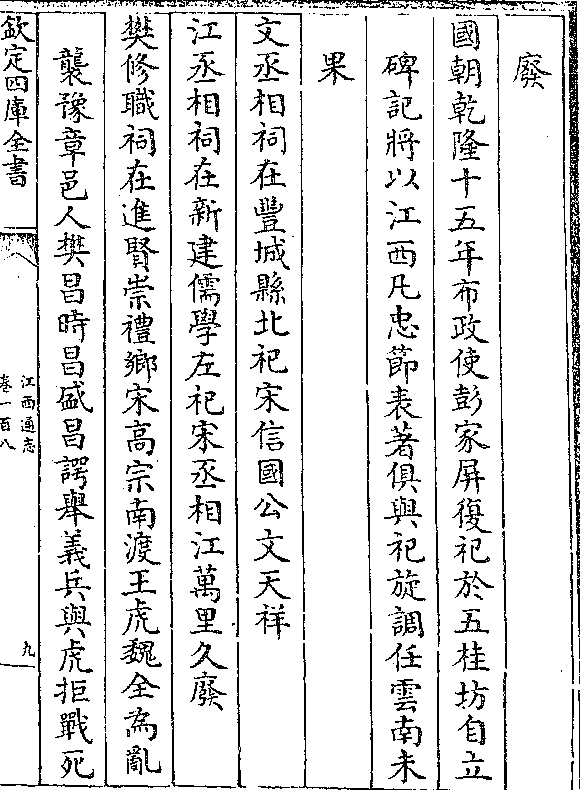 廢
國朝乾隆十五年布政使彭家屏復祀於五桂坊自立
碑記將以江西凡忠節表著俱與祀旋調任雲南未
果
文丞相祠在豐城縣北祀宋信國公文天祥
江丞相祠在新建儒學左祀宋丞相江萬里久廢
樊修職祠在進賢崇禮鄉宋高宗南渡王虎魏全為亂
襲豫章邑人樊昌時昌盛昌諤舉義兵與虎拒戰死
欽定四庫全書
江西通志
卷一百八
九